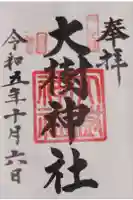 奉拝
大樹神社
令和五年十月六日